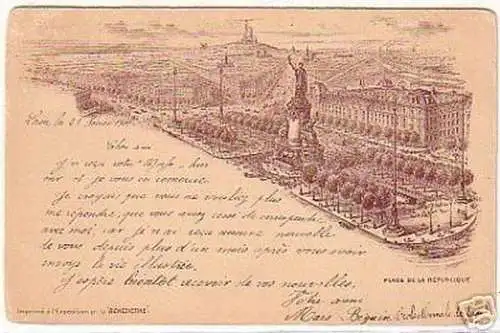 PLACE DE LA RÉPUBLIQUE
le 28 Janvier
Cher ami
J'ai reçu votre hier
soir et je vous en remercie.
Je croyais que vous ne vouliez plus
me répondre, que vous aviez cessé de correspondre
avec moi, car je n'ai reçu aucune nouvelle
de vous depuis plus d'un mois après vous avoir
envoyé la vie illustrée.
J'espère bientôt recevoir de vos nouvelles.
Votre ami
Imprimé à l'Exposition p. la "BÉNÉDICTINE"